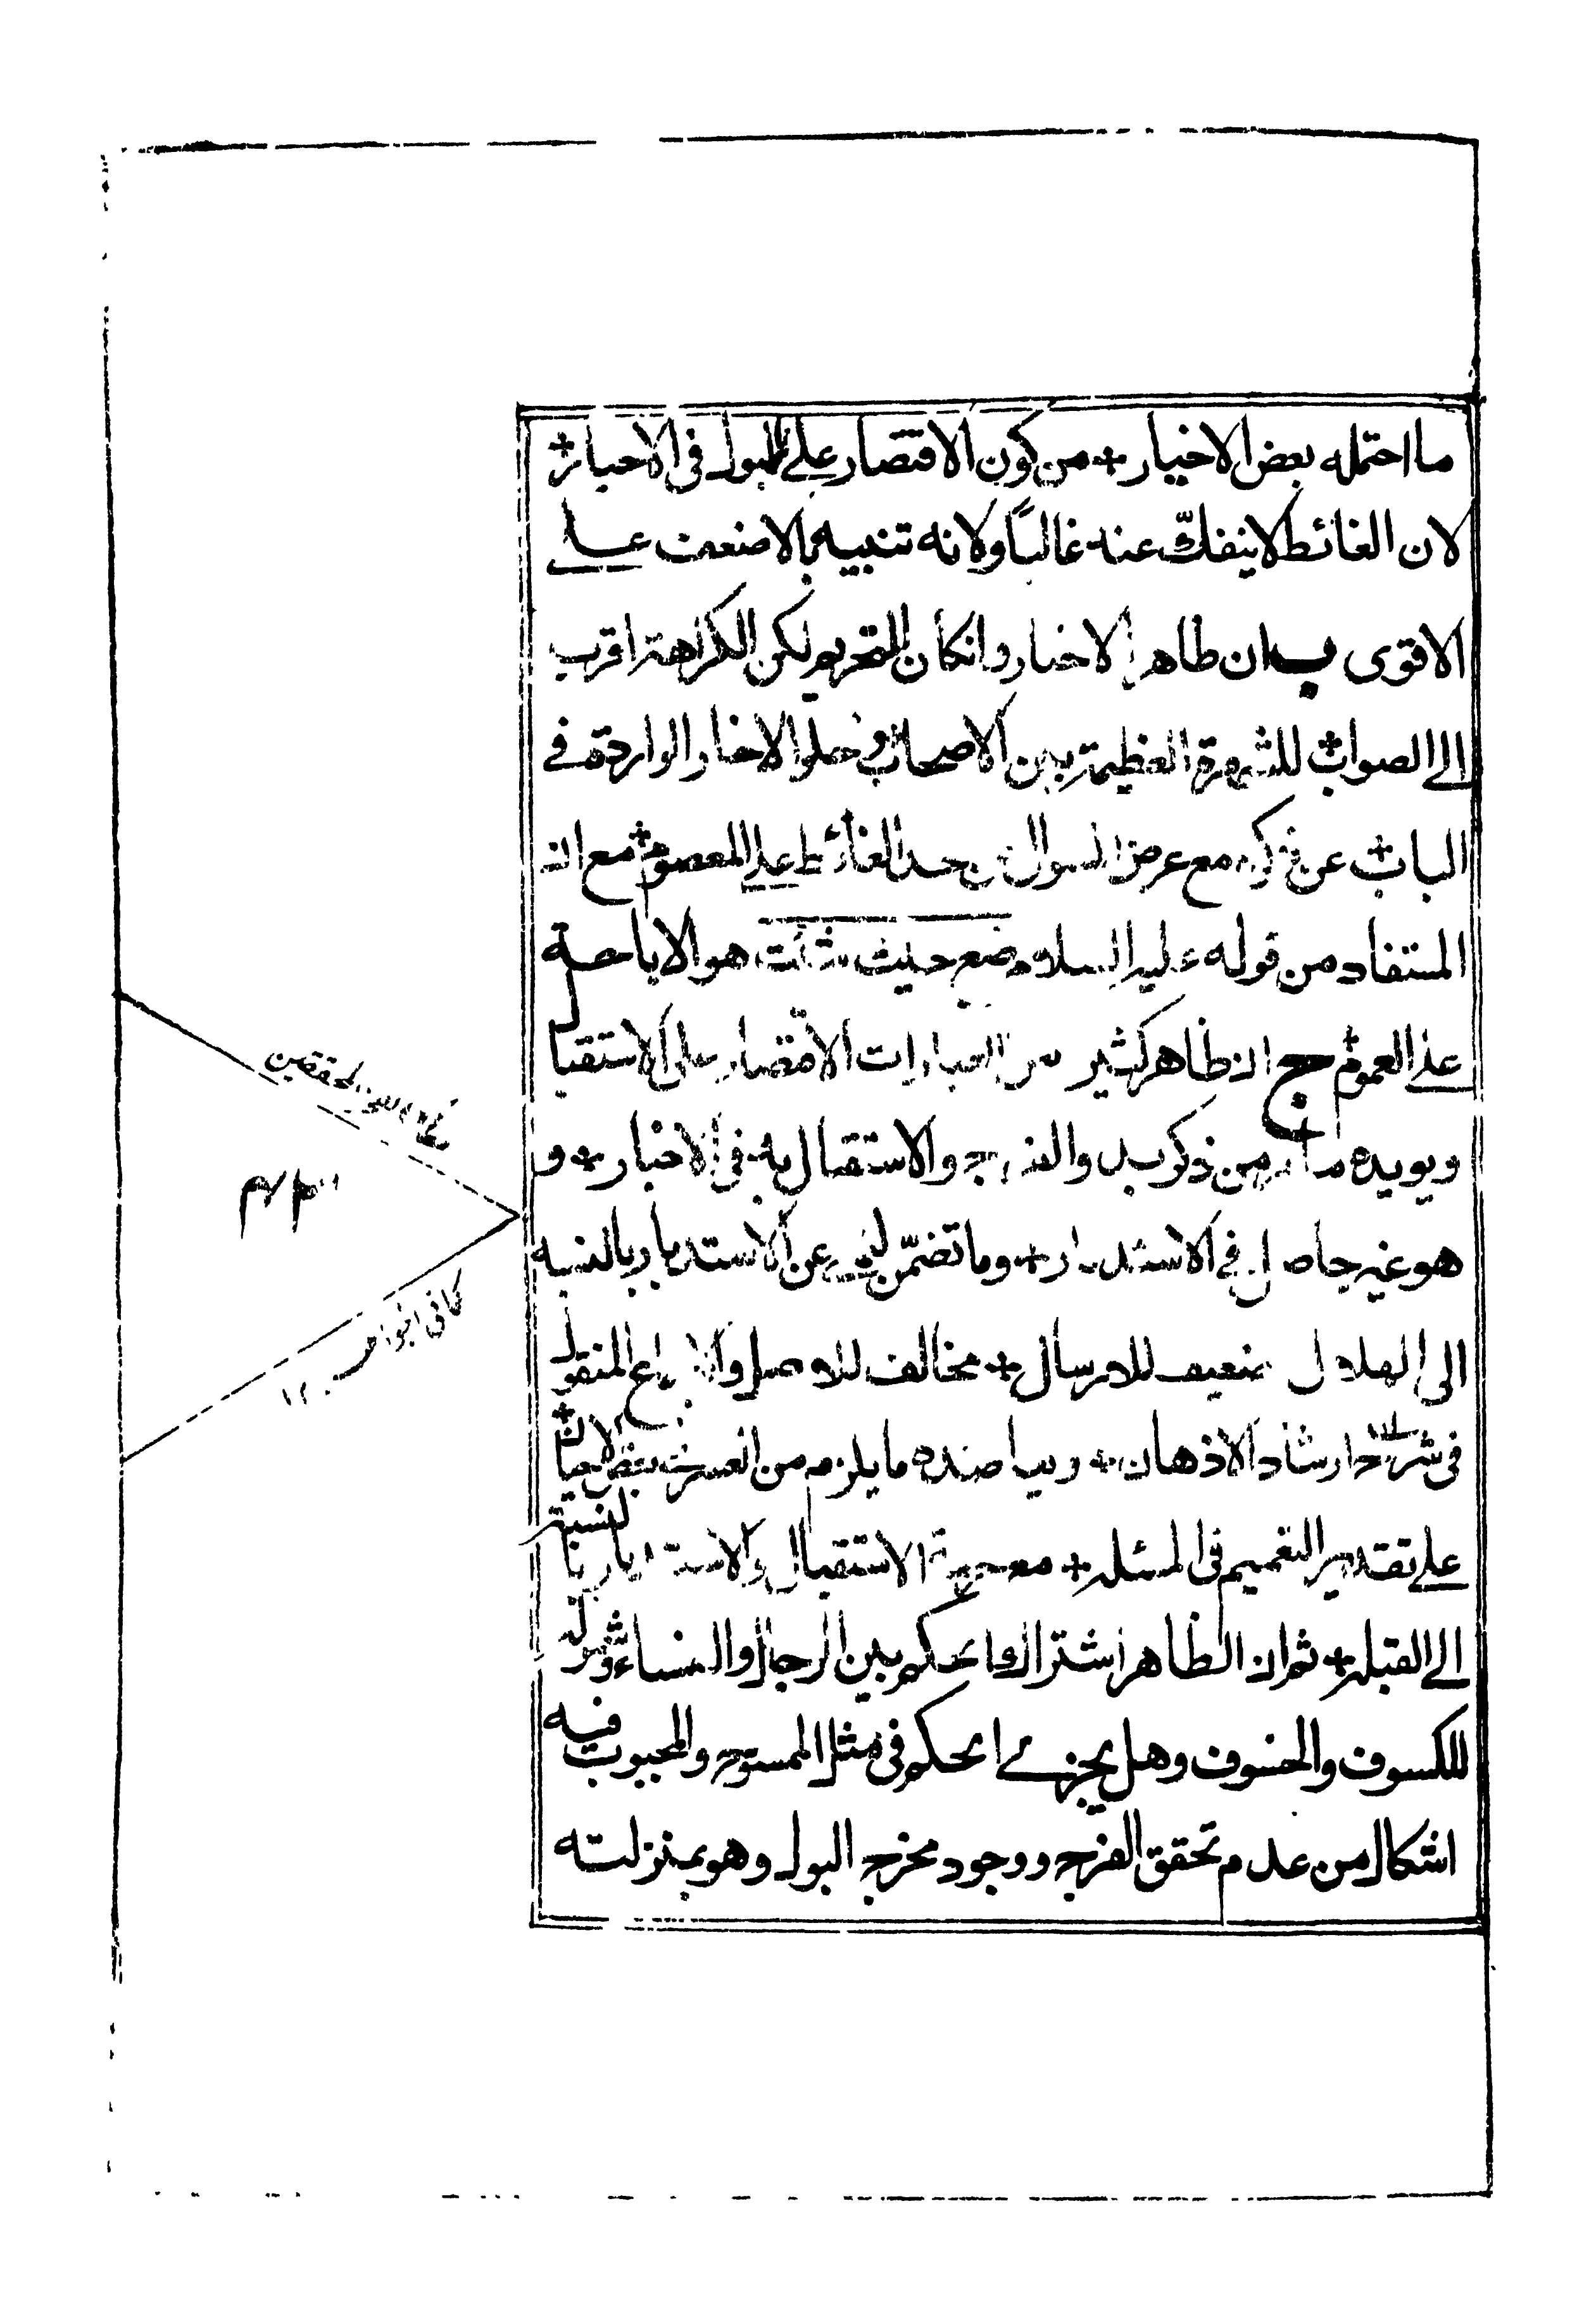 ما احتمله بعض الاخيار + من كون الاقتصار على البول فى الاخبار +
لان الغائط لا ينفكّ عنه غالبًا ولانه تنبيه بالاضعف على
الاقوى ب ان ظاهر الاخبار وانكان التحريم لكن الكراهة اقرب
الى الصواب + للشهرة العظيمة بين الاصحاب + و حملوا الاخبار الواردة فى
الباب + عن مع عرض السوال عن حد الغائط على المعصوم + مع انه
المستفاد من قوله عليه السلام ضع حيث شئت هو الاباحة
على العموم + ج ان ظاهر كثير من العبارات الاقتصار على الاستقبال
ويويده ما من ذكر والفرج والاستقبال به فى الاخبار + و
هو غير حاصل فى الاستدبار + وما تضمّن النهى عن الاستدبار بالنسبه
الى الهلال ضعيف للارسال + مخالف للاصل و المنقول
فى شرح ارشاد الاذهان + و ما يلزم من العسر فى بعض الاحيان +
على تقدير التعميم فى المسئلة + مع حرمة الاستقبال والاستدبار بالنسبة
الى القبلة + ثم ان الظاهر اشتراك الحكم بين الرجال والنساء + وشموله
للكسوف والخسوف وهل يجزى الحكم فى مثل الممسوح والمجبوب فيه
اشكال من عدم تحقق الفرج ووجود مخرج البول وهو بمنزلته
المحققين
كما فى الجواهر ١٢